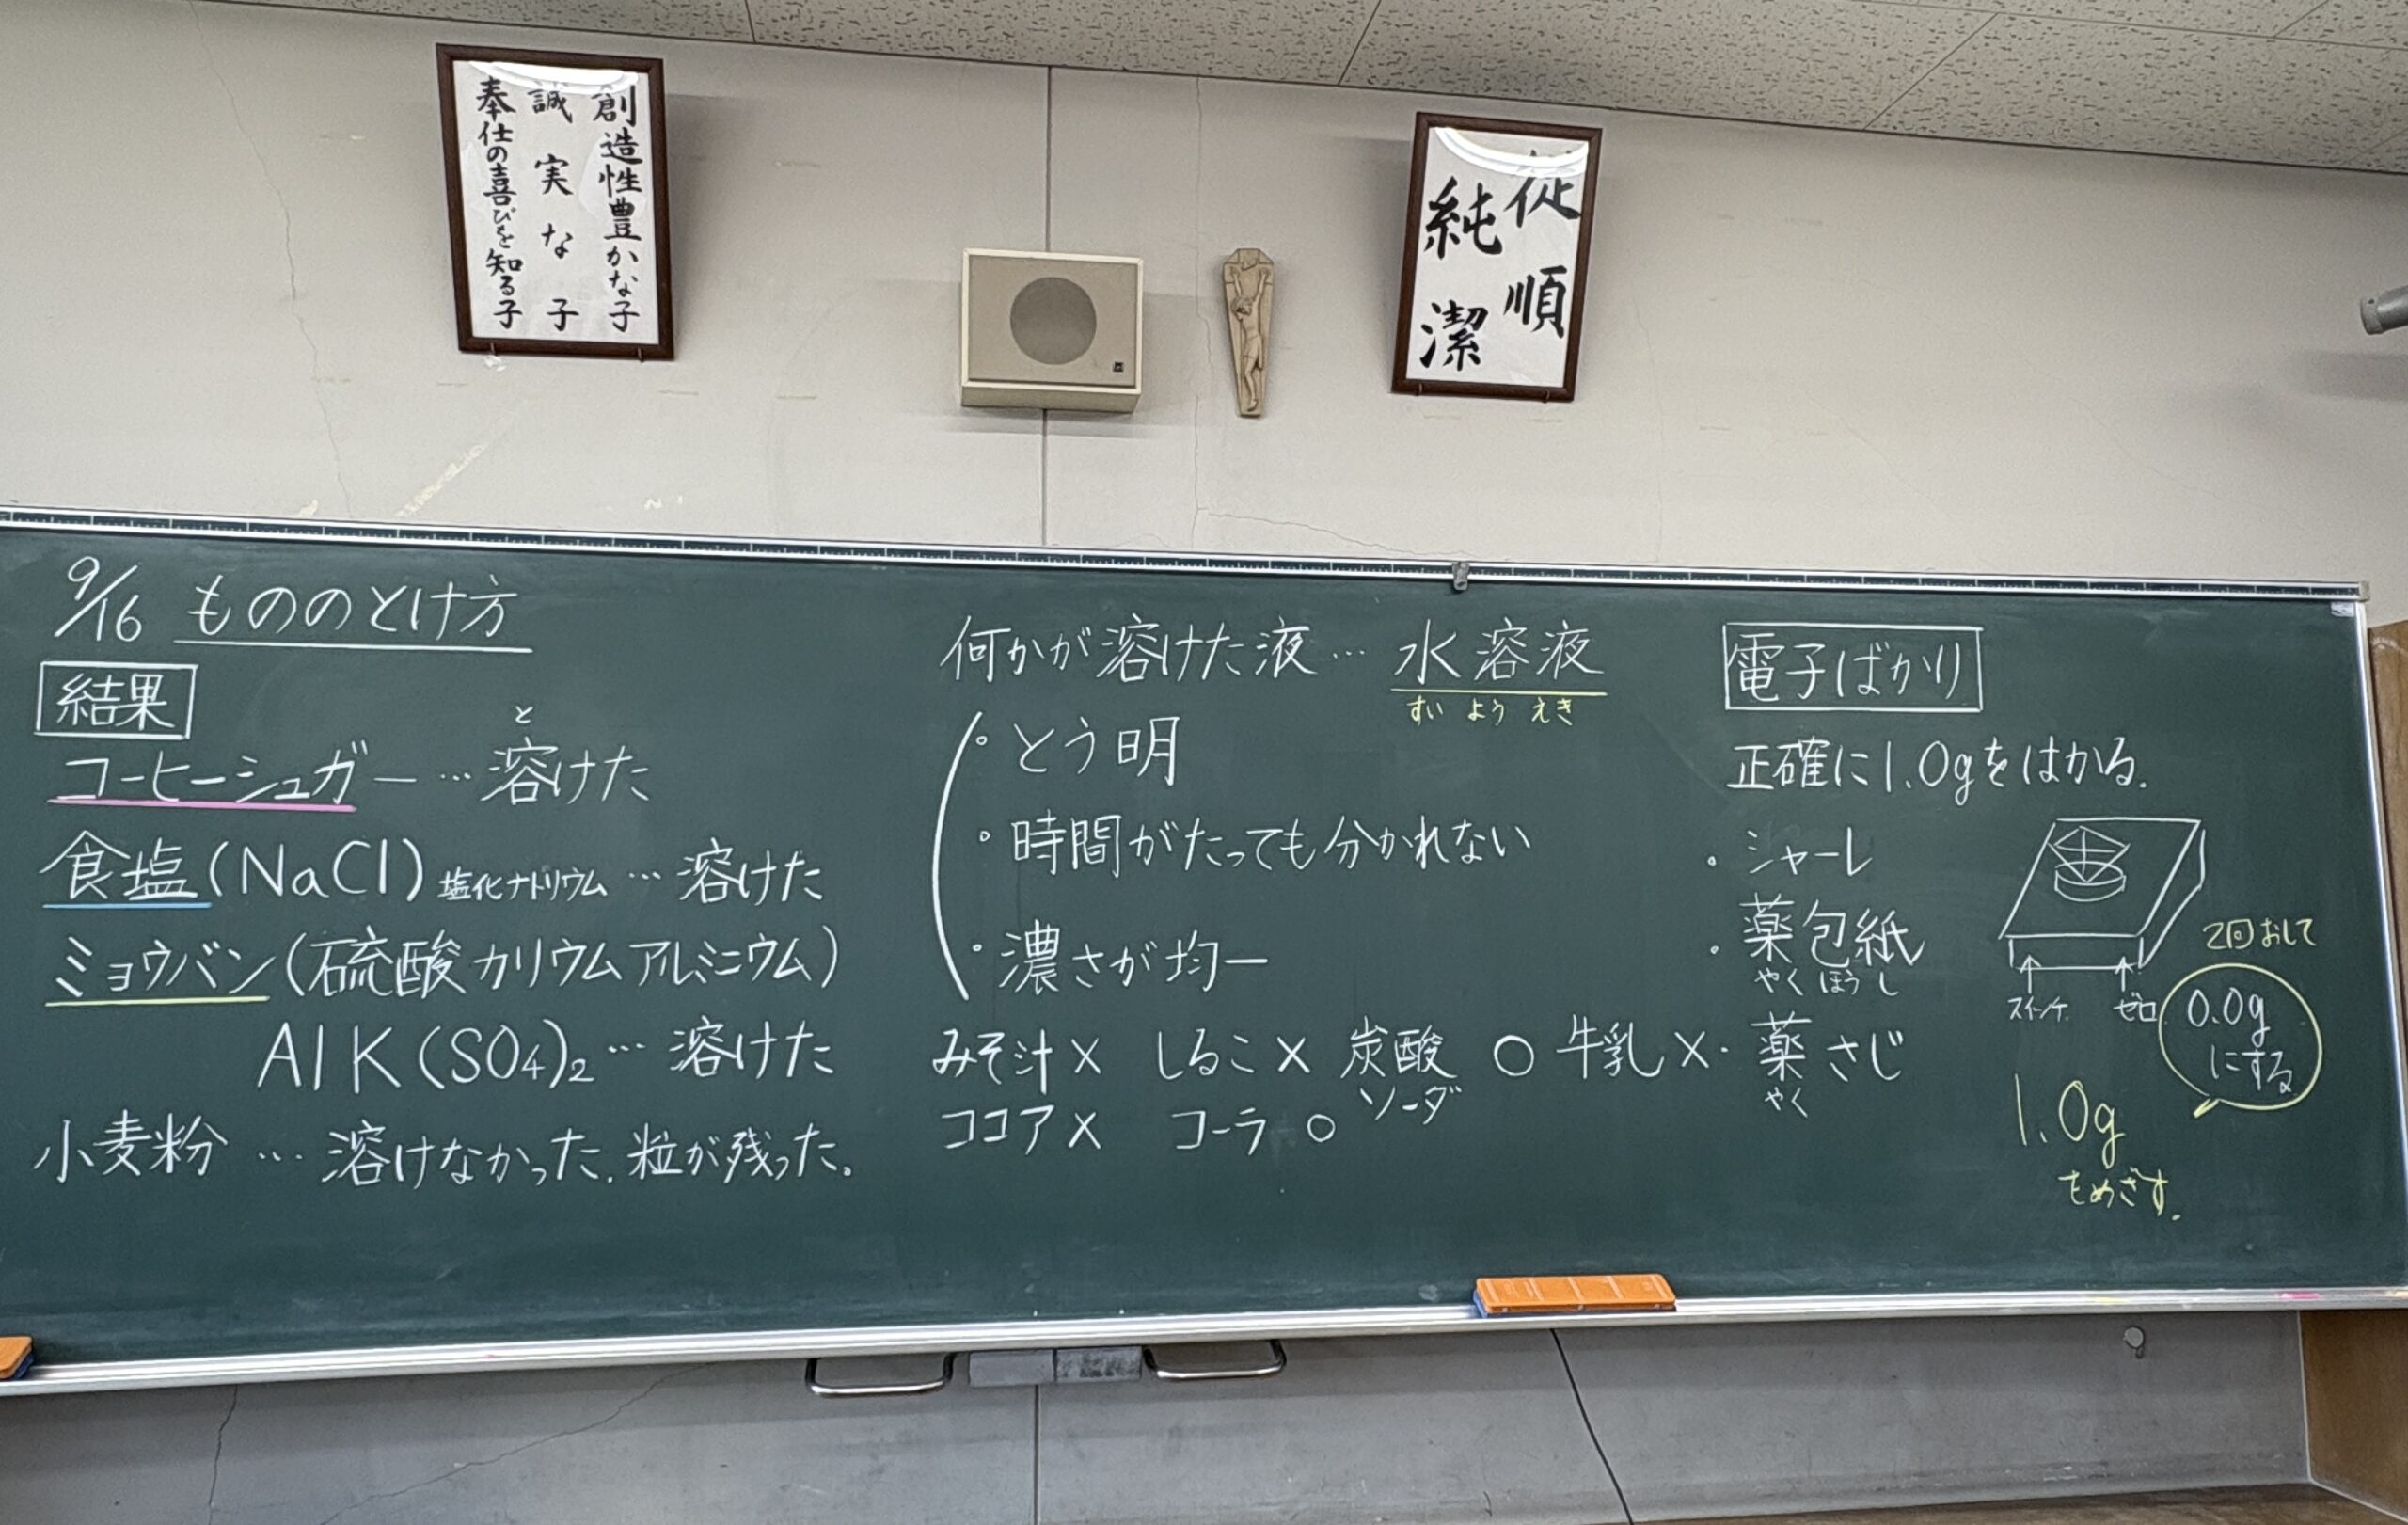 創造性豊かな子
誠実な子
奉仕の喜びを知る子
従順
純潔
9/16 もののとけ方
結果
コーヒーシュガー…溶けた
と
食塩(NaCl)塩化ナトリウム…溶けた
ミョウバン(硫酸カリウムアルミニウム)
AlK(SO4)2…溶けた
小麦粉…溶けなかった.粒が残った。
何かが溶けた液…水溶液
すいようえき
・とう明
・時間がたっても分かれない
・濃さが均一
みそ汁× しるこ× 炭酸ソーダ ○ 牛乳×
ココア× コーラ○
電子ばかり
正確に1.0gをはかる.
・シャーレ
・薬包紙
やくほうし
・薬さじ
やく
スイッチ
ゼロ
2回おして
0.0g
にする
1.0g
をめざす.